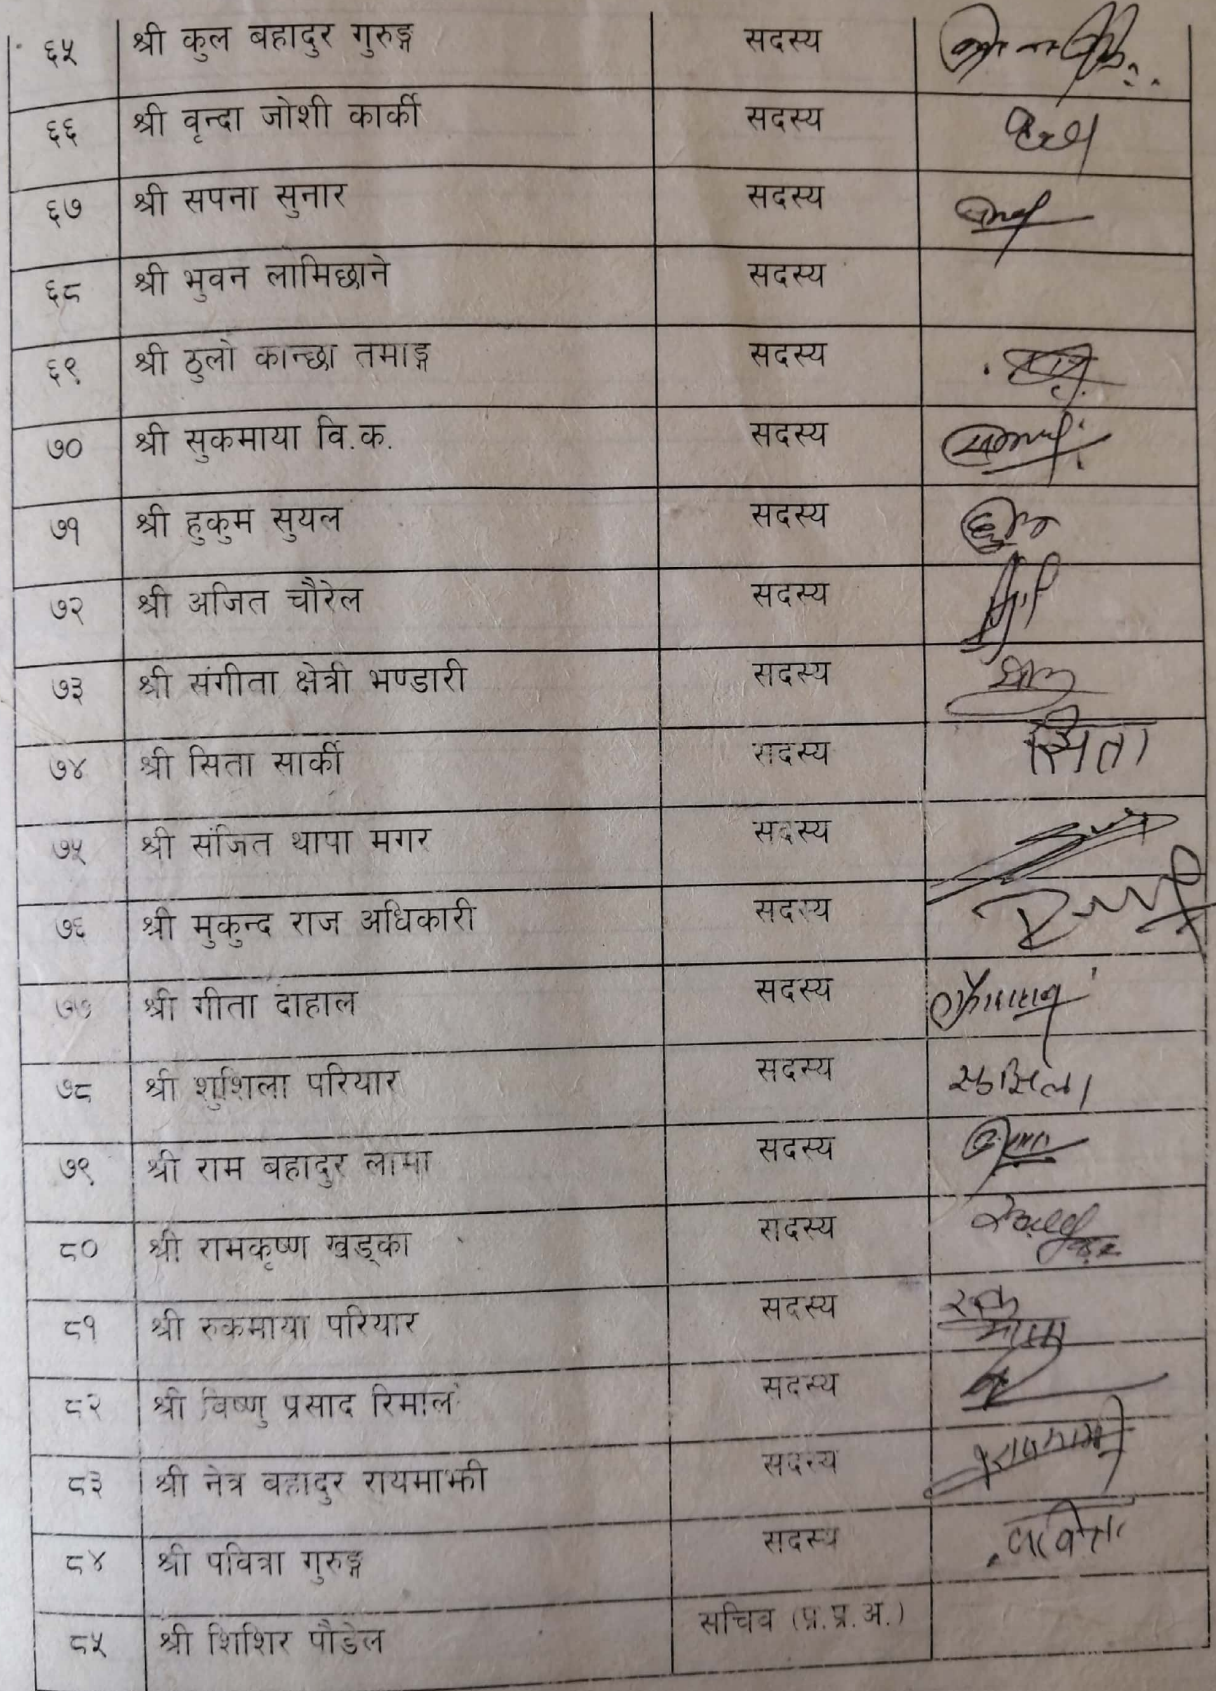 ६५ श्री कुल बहादुर गुरुङ्ग सदस्य
६६ श्री वृन्दा जोशी कार्की सदस्य
६७ श्री सपना सुनार सदस्य
६८ श्री भुवन लामिछाने सदस्य
६९ श्री ठुलो कान्छा तमाङ्ग सदस्य
७० श्री सुकमाया वि.क. सदस्य
७१ श्री हुकुम सुयल सदस्य
७२ श्री अजित चौरेल सदस्य
७३ श्री संगीता क्षेत्री भण्डारी सदस्य
७४ श्री सिता सार्की सदस्य सिता
७५ श्री संजित थापा मगर सदस्य
७६ श्री मुकुन्द राज अधिकारी सदस्य
७७ श्री गीता दाहाल सदस्य
७८ श्री शुशिला परियार सदस्य
७९ श्री राम बहादुर लामा सदस्य
८० श्री रामकृष्ण खड्का सदस्य
८१ श्री रुकमाया परियार सदस्य
८२ श्री विष्णु प्रसाद रिमाल सदस्य
८३ श्री नेत्र बहादुर रायमाझी सदस्य
८४ श्री पवित्रा गुरुङ्ग सदस्य पवित्रा
८५ श्री शिशिर पौडेल सचिव (प्र.प्र.अ.)